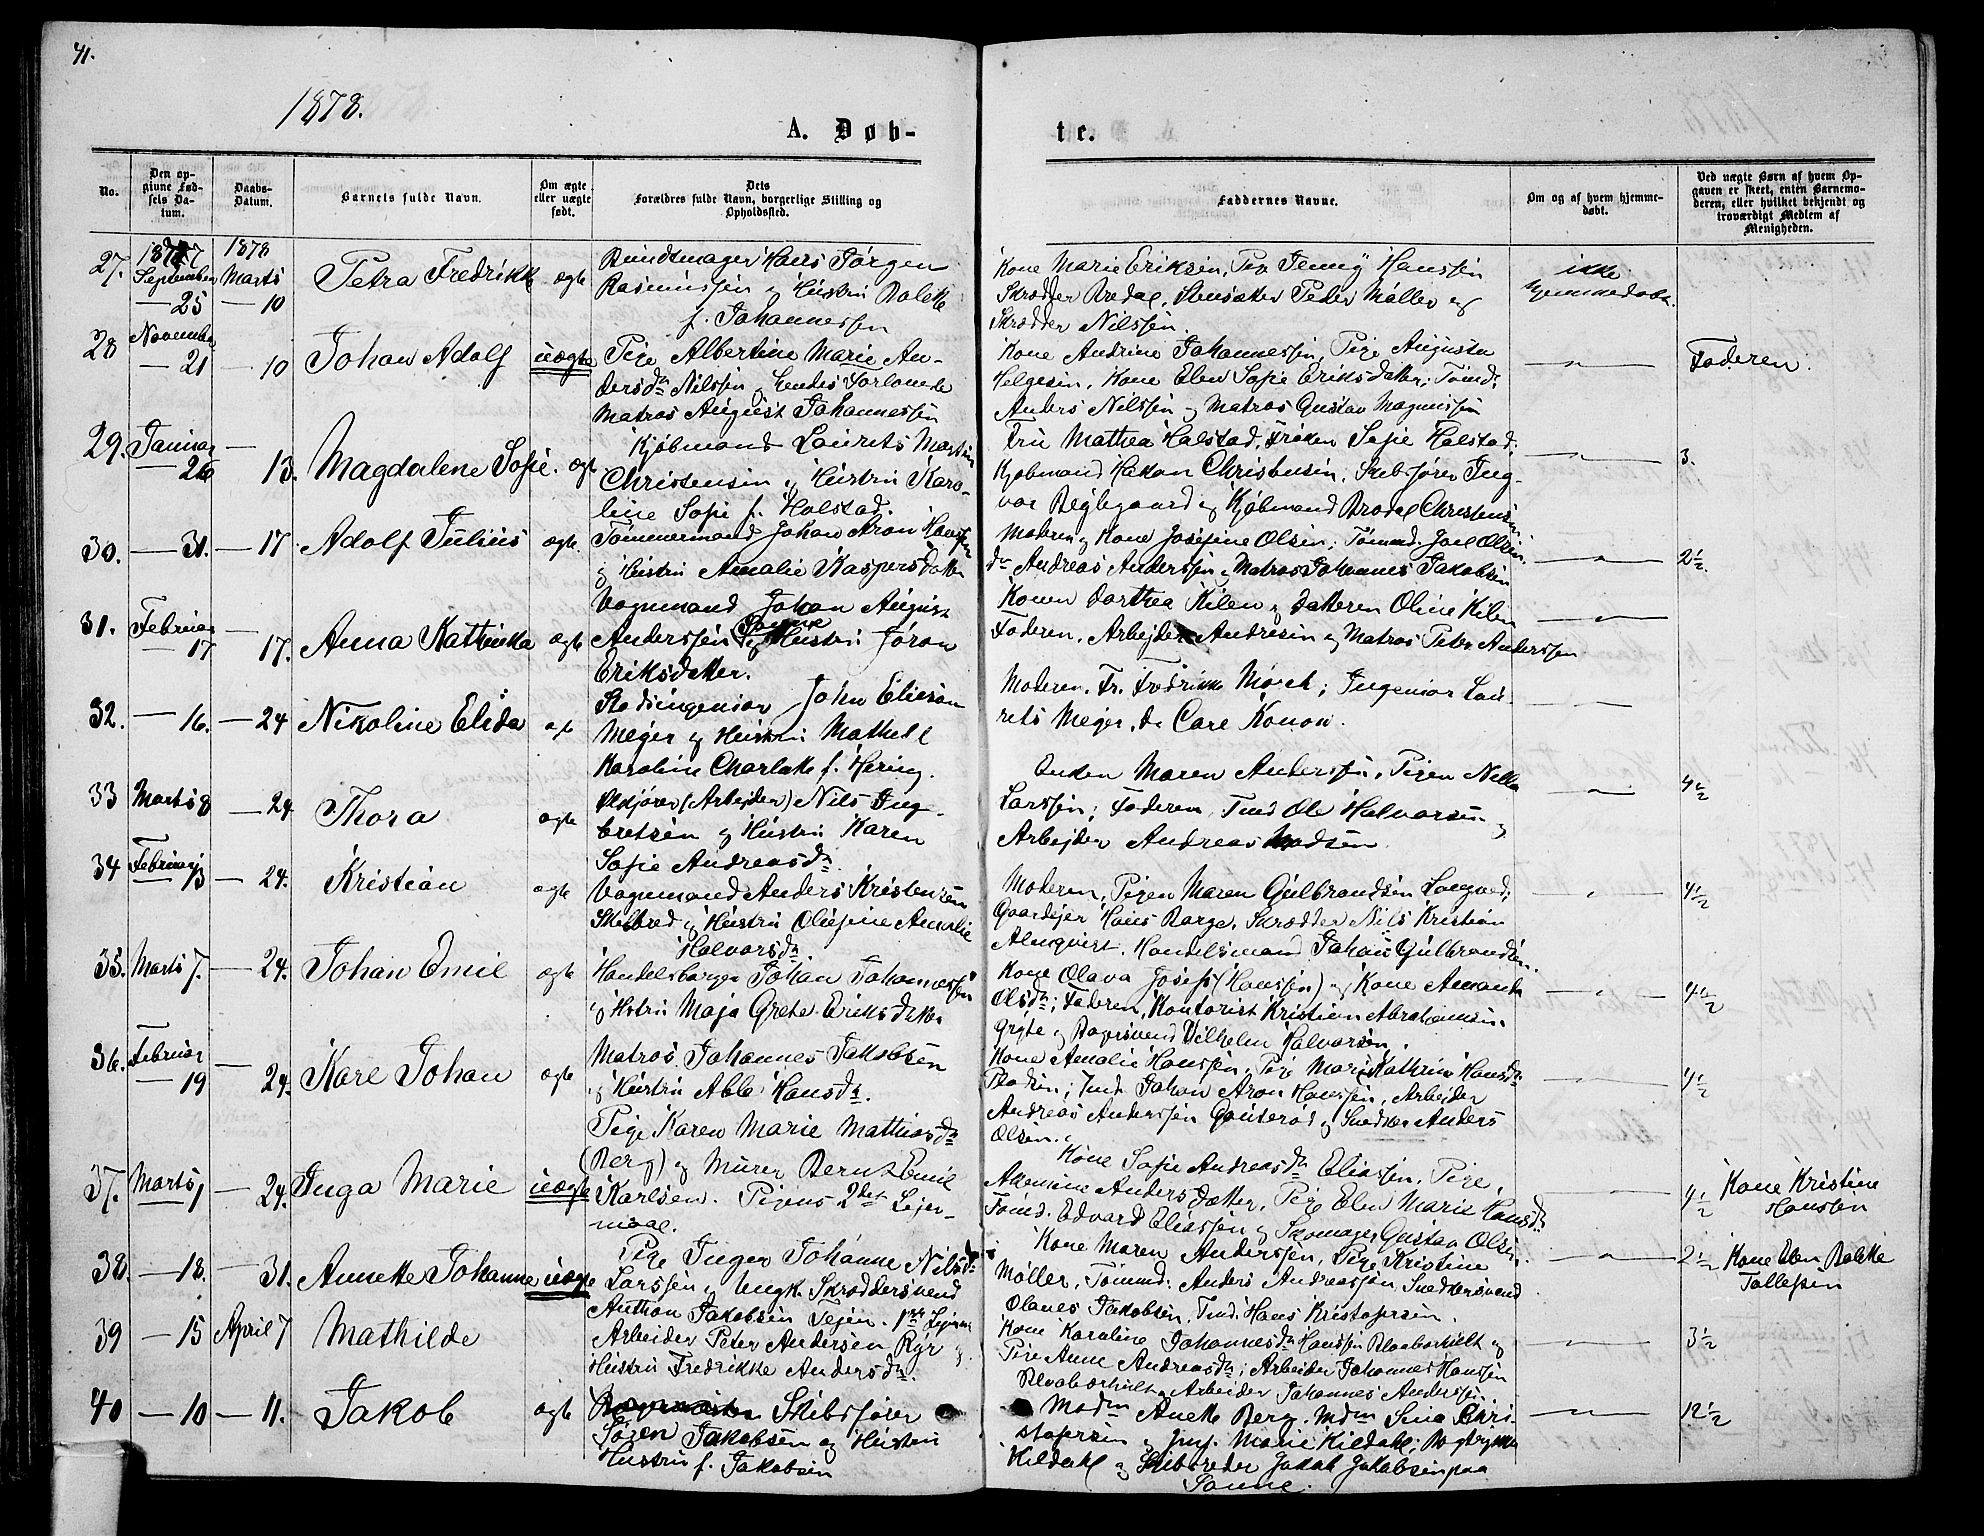 41.
1878.
A. Døb-
te.
No.
Den op-
givne Fød-
sels Da-
tum.
Daabs-
Datum.
Barnets fulde Navn.
Om ægte
eller uægte
født.
Dets
Forældres fulde Navn, borgerlige Stilling og
Opholdssted.
Faddernes Navne.
Om og af hvem hjemme-
døbt.
Ved uægte Børn af hvem Op-
gaven er skeet, enten Barnemo-
deren, eller hvilket bekjendt og
troværdigt Medlem af
Menigheden.
27.
1877
September
— 25
1878
Marts
— 10
Petra Fredrikke
ægte
Bundtmager Hans Jørgen
Rasmussen og Hustru Bolette
f. Johannessen
Kone Marie Eriksen, Pige Jenny Hanssen
Skrædder Brodal, Peder Møller og
Skrædder Nilssen.
ikke
hjemmedøbt.
28
November
— 21
— 10
Johan Adolf
uægte
Pige Albertine Marie An-
dersdr Nilssen og hendes Forlovede
Matros August Johannessen
Kone Andrine Johannessen, Pige Augusta
Helgesen, Kone Elen Sofie Eriksdatter; Tømd.
Anders Nilssen og Matros Gustav Magnussen
— " —
Faderen.
29.
Januar
— 26
—
13.
Magdalene Sofie.
ægt
Kjøbmand Laurets Martin
Christensen og Hustru Karo-
line Sofie f. Holstad.
Fru Mathea Holstad, Frøken Sofie Holstad;
Kjøbmand Hakon Christensen, Skibsfører Ing-
var Beglegaard og Kjøbmand Brodal Christensen
— " —
3.
30.
— 31.
— 17.
Adolf Julius
ægte
Tømmermand Johan Aron Hanssen
og Hustru Amalie Kaspersdatter
Moderen og Kone Josefine Olsen; Tømmd. Joel Olsen,
do Andreas Anderssen og Matros Johannes Jakobsen
— " —
2½.
31.
Februar
— 17
—
17.
Anna Kathinka
ægte
Vognmand Johan August
Anderssen og Hustru Jøran
Eriksdatter.
Konen Dorthea Kilen og Datteren Oline Kilen
Faderen, Arbejder Andresen og Matros Peter Anderssen
— " —
32.
— 16.
— 24
Nikoline Elida
ægte
Stadsingeniør John Eliesон
Meger og Hustru Mathell
Karoline Charlotte f. Hering.
Moderen, Fr. Fredrikke Mørch; Ingeniør Lau-
rets Meger, do Care Konow.
— " —
33
Marts 8
— 24
Thora
ægte
Ølkjører (Arbejder) Nils Ing-
bretsen og Hustru Karen
Sofie Andreasdr.
Enken Maren Anderssen, Pigen Nella
Larssen; Faderen, Tmd Ole Halvorsen og
Arbejder Andreas Madsen.
— " —
4½
34
Februar
— 13
— 24.
Kristian
ægte
Vognmand Anders Kristensen
Skilbred og Hustru Olufine Amalie
Halvorsdr
Moderen, Pigen Maren Gulbrandsen;
Gaardejer Hans Borge, Skrædder Nils Kristian
Almqvist, Handelsmand Johan Gulbrandsen.
— " —
4½
35.
Marts 7.
— 24.
Johan Emil
ægte
Handelsborger Johan Johannessen
og Hstru Maja Grete Eriksdatter
Kone Olava Josefs (Hanssen) og Kone Amanda
Olsdr; Faderen, Kontorist Kristian Abrahamsen
Grøte og Bagersvend Vilhelm Halvorsen.
— " —
4½
36.
Februar
— 19
—
24.
Karl Johan
ægte
Matros Johannes Jakobsen
og Hustru Abla Hansdr.
Kone Amalie Hanssen, Pige Mari Kathrine Hansdr
Bodsin; Tmd. Johan Aron Hanssen, Arbejder
Andreas Anderssen og Snedker Anders
Olsen.
— " —
4½
37.
Marts 1
— 24.
Inga Marie
uægte
Pige Karen Marie Mathiasdr
(Berg) og Murer Bernt Emil
Karlsen. Pigens 2det Lejer-
maal.
Kone Sofie Andreasdr Eliassen, Pige
Andersdatter, Pige Elen Marie Hansdr
Tømd. Edvard Eliassen og Skomager Gustav Olsen
— " —
4½
Kone Kristine
Hanssen
38.
— 18.
— 31.
Annette Johanne
uægte
Pige Inger Johanne Nilsdr
Larssen og Ungk. Skræddersvend
Anthon Jakobsen Tejen. 1ste Lejerm.
Kone Maren Anderssen, Pige Kristine
Møller, Tømmd. Anders Andreassen, Snedkersvend
Olaves Jakobsen, Tmd. Hans Kristofersen.
— " —
2½
Kone Elen Bolette
Tollefsen
39
— 15
April 7
Mathilde
Arbeider Peter Andersen Ryr og
Hustru Fredrikke Andersdr.
Kone Karoline Johannesdr Hanssen Blaabærhult og
Pige Anne Andreasdr; Arbeider Johannes Hanssen
Blaabærhult og Arbeider Johannes Anderssen
— " —
3½
40
— 10
— 11.
Jakob
ægte
Skibsfører
Søren Jakobsen og Hustru
Hustru f. Jakobsen
Madm Anette Berg, Mdm Sina Kri-
stofersen og Jmf. Marie Kildahl; Bogtrykker
Kildahl og Skibsreder Jakob Jakobsen paa
Sanne.
— " —
12½